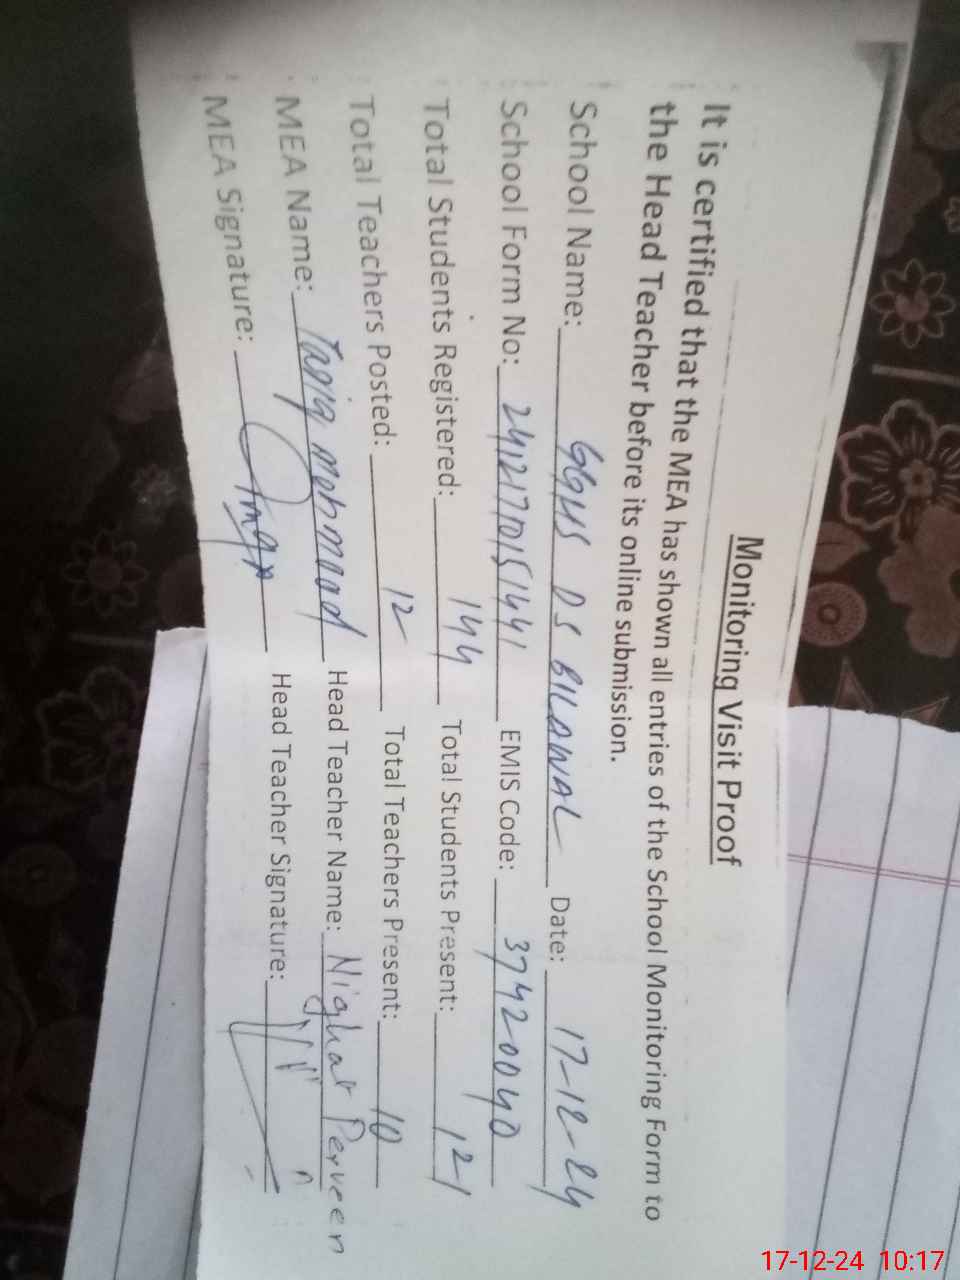 Monitoring Visit Proof
It is certified that the MEA has shown all entries of the School Monitoring Form to
the Head Teacher before its online submission.
School Name: GGHS DS BILAWAL Date: 17-12-24
School Form No: 2412170151441 EMIS Code: 37420040
Total Students Registered: 144 Total Students Present: 121
Total Teachers Posted: 12 Total Teachers Present: 10
MEA Name: Tariq Mehmood Head Teacher Name: Nighat Perveen
MEA Signature: Head Teacher Signature:
17-12-24 10:17